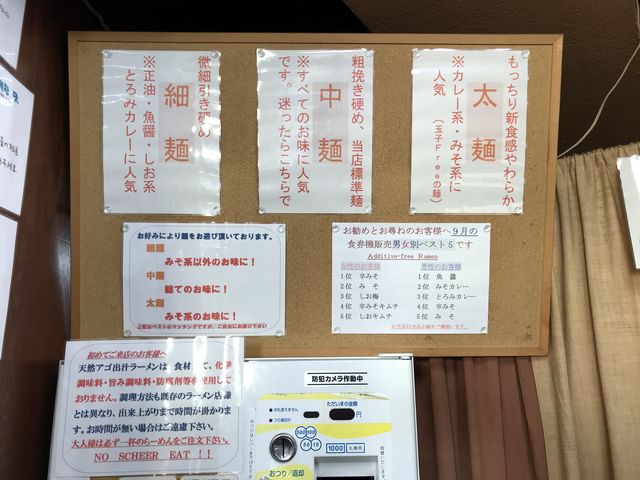 もっちり新食感やわらか
太麺
※カレー系・みそ系に
人気（玉子Freeの麺）
粗挽き硬め、当店標準麺
中麺
※すべてのお味に人気
です。迷ったらこちらで
微細引き硬め
細麺
※正油・魚醤・しお系
とろみカレーに人気
お好みにより麺をお選び頂いております。
細麺
みそ系以外のお味に！
中麺
総てのお味に！
太麺
みそ系のお味に！
上記はベストのマッチングですが、ご自由にお選び下さい
お勧めとお尋ねのお客様へ9月の
食券機販売男女別ベスト5です
Additive-free Ramen
女性のお客様
1位 辛みそ
2位 みそ
3位 しお梅
4位 辛みそキムチ
5位 しおキムチ
男性のお客様
1位 魚醤
2位 みそカレー
3位 とろみカレー
4位 辛みそ
5位 みそ
初めてご来店のお客様へ
天然アゴ出汁ラーメンは、食材全て、化学
調味料・旨み調味料・防腐剤等を使用して
おりません。調理方法も既存のラーメン店様
とは異なり、出来上がりまで時間が掛かりま
す。お時間が無い場合はご遠慮下さい。
大人様は必ず一杯のらーめんをご注文下さい。
NO SCHEER EAT！！
防犯カメラ作動中
お札使えません
つり銭切れ
ただいまの金額
円
500 100
50 10
1000 札専用
おつり/返却